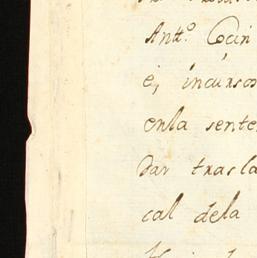 Antt.º Cocin
é, incursos
enla sente
dar trasla
cal dela